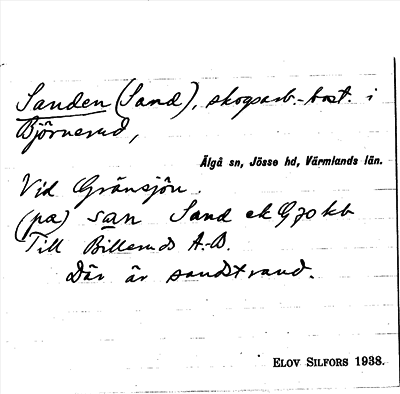 Sanden (Sand), skogsarb.-bost. i
Björnerud,
Älgå sn, Jösse hd, Värmlands län.
Vid Gränsjön.
(pa) san Sand ek G70 kb
Till Billeruds A.-B.
Där är sandstrand.
ELOV SILFORS 1938.